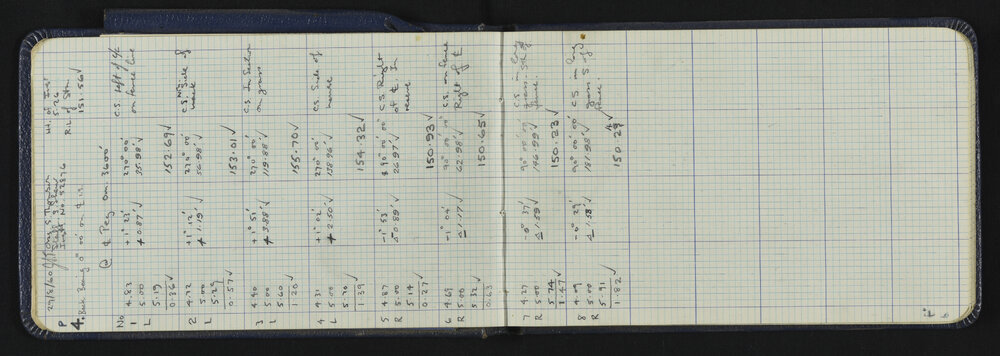 P 29/8/60 Ht. of Inst
Staff: S. Shaw 5.26
Inst No. 52876 R.L. of Stn.
4. Back Bearing 0° 00' on ¢ is. 151.56 ✓
@ ¢ Peg on 3600'
No 4.83 +1° 23' 270° 00' C.S. Left of ¢
1 5.00 + 0.87' 35.98' on fence line
L 5.19
0.36 ✓ 152.69 ✓
2 4.72 +1° 12' 270° 00' C.S. Side of
L 5.00 + 1.19' 56.98'
5.29
0.57 ✓ 153.01 ✓
3 4.40 +1° 51' 270° 00' C.S. In Section
L 5.00 + 3.88' 119.88' on grass
5.60
1.20 ✓ 155.70 ✓
4 4.31 +1° 02' 270° 00' C.S. Side of
L 5.00 + 2.50' 138.96'
5.70
1.39 ✓ 154.32 ✓
5 4.87 -1° 53' 90° 00' C.S. Right
R 5.00 - 0.89' 26.97' of ¢. In
5.14 reserve
0.27 ✓ 150.93 ✓
6 4.69 -1° 04' 90° 00' C.S. on fence
R 5.00 - 1.17' 62.98' Right of ¢
5.32
0.63 150.65 ✓
7 4.27 -0° 37' 90° 00' C.S. in long
R 5.00 - 1.59' 146.99' grass. of
5.74 fence.
1.47 ✓ 150.23 ✓
8 4.09 -0° 29' 90° 00' C.S. in long
R 5.00 - 1.53' 181.98' grass S of
5.91 fence.
1.82 ✓ 150.29 ✓